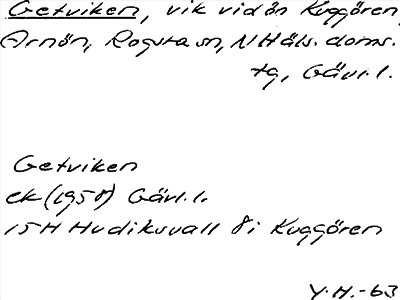 Getviken, vik vid ön Kuggören,
Arnön, Rogsta sn, N Häls. doms.
tg, Gävl. l.
Getviken
ek (1958) Gävl. l.
15H Hudiksvall 8i Kuggören
Y.H.-63